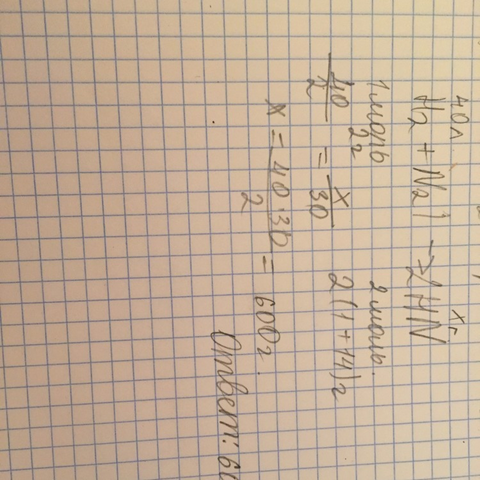 40л xг
H₂ + N₂ → 2HN
1 моль 2 моль.
2г 2(1+14)г
40/2 = x/30
x = 40·30/2 = 600г.
Ответ: 60